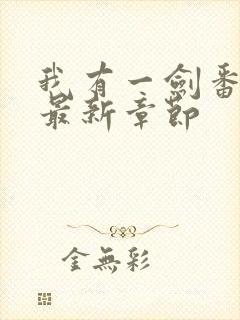 我有一劍番
最新章節
金無彩